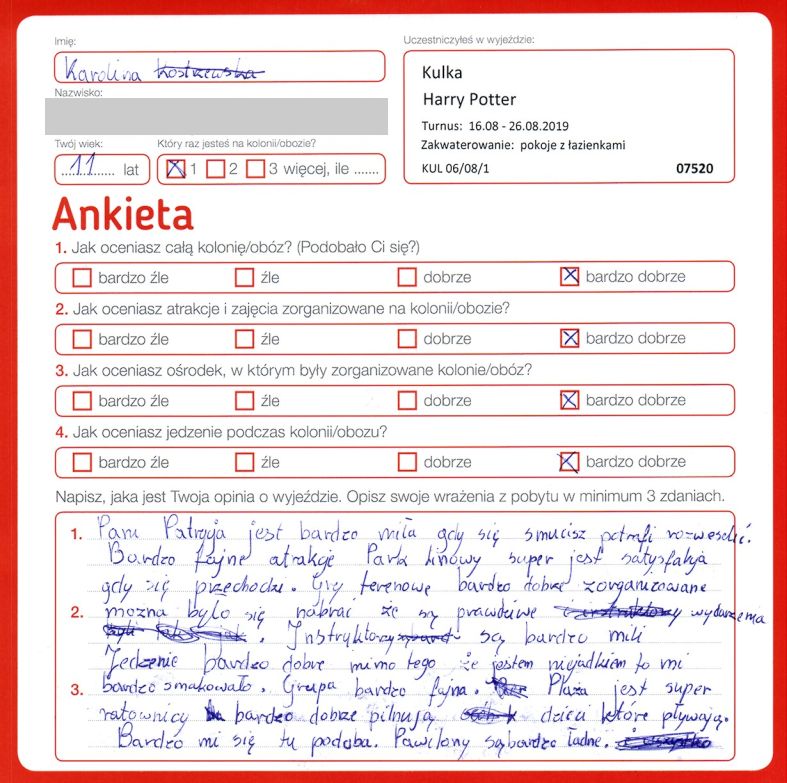 Imię:
Uczestniczyłeś w wyjeździe:
Karolina
Kulka
Harry Potter
Nazwisko:
Turnus: 16.08 - 26.08.2019
Zakwaterowanie: pokoje z łazienkami
KUL 06/08/1 07520
Twój wiek: Który raz jesteś na kolonii/obozie?
11 lat 1 2 3 więcej, ile .......
Ankieta
1. Jak oceniasz całą kolonię/obóz? (Podobało Ci się?)
bardzo źle źle dobrze bardzo dobrze
2. Jak oceniasz atrakcje i zajęcia zorganizowane na kolonii/obozie?
bardzo źle źle dobrze bardzo dobrze
3. Jak oceniasz ośrodek, w którym były zorganizowane kolonie/obóz?
bardzo źle źle dobrze bardzo dobrze
4. Jak oceniasz jedzenie podczas kolonii/obozu?
bardzo źle źle dobrze bardzo dobrze
Napisz, jaka jest Twoja opinia o wyjeździe. Opisz swoje wrażenia z pobytu w minimum 3 zdaniach.
1. Pani Patrycja jest bardzo miła gdy się smucisz potrafi rozweselić.
Bardzo fajne atrakcje Park linowy super jest satysfakja
gdy się przechodzi. Gry terenowe bardzo dobrze zorganizowane
2. można było się nabrać że są prawdziwe wydarzenia
. Instruktorzy są bardzo mili
Jedzenie bardzo dobre mimo tego że jestem niejadkiem to mi
3. bardzo smakowało. Grupa bardzo fajna. Plaża jest super
ratownicy bardzo dobrze pilnują dzieci które pływają.
Bardzo mi się tu podoba. Pawilony są bardzo ładne.